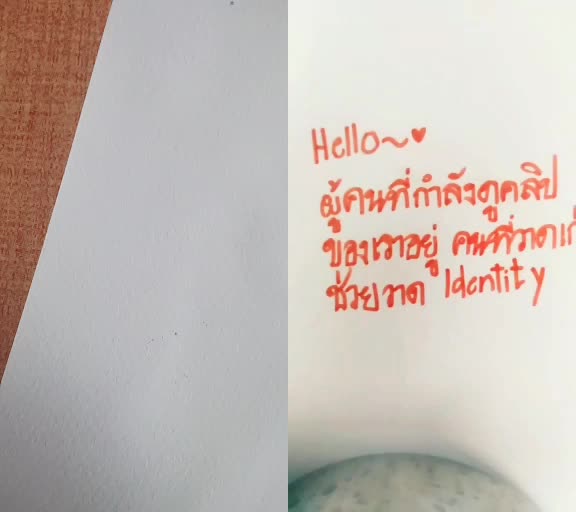 Hello~♥
ผู้คนที่กำลังดูคลิป
ของเราอยู่ คนที่วาดเก่
ช่วยวาด Identity